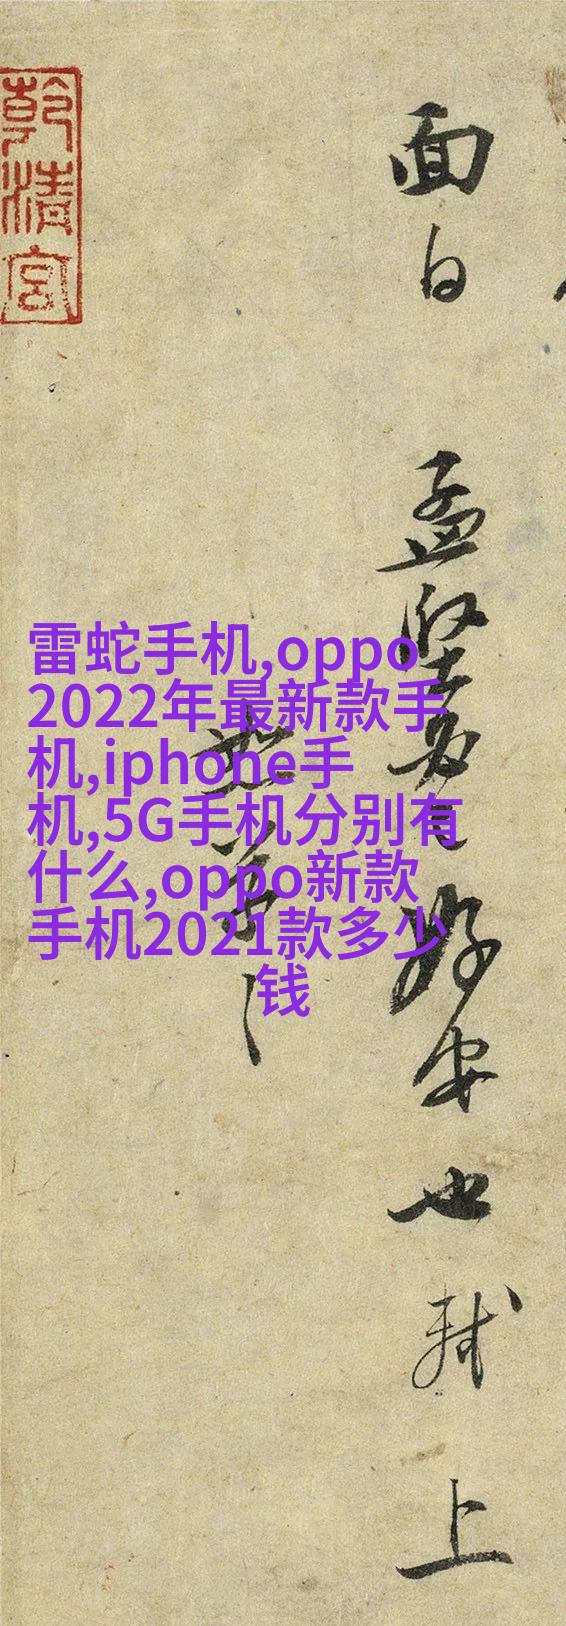 乾清宮
面白 孟堅
好安也軾上
雷蛇手机,oppo
2022年最新款手
机,iphone手
机,5G手机分别有
什么,oppo新款
手机2021款多少
钱